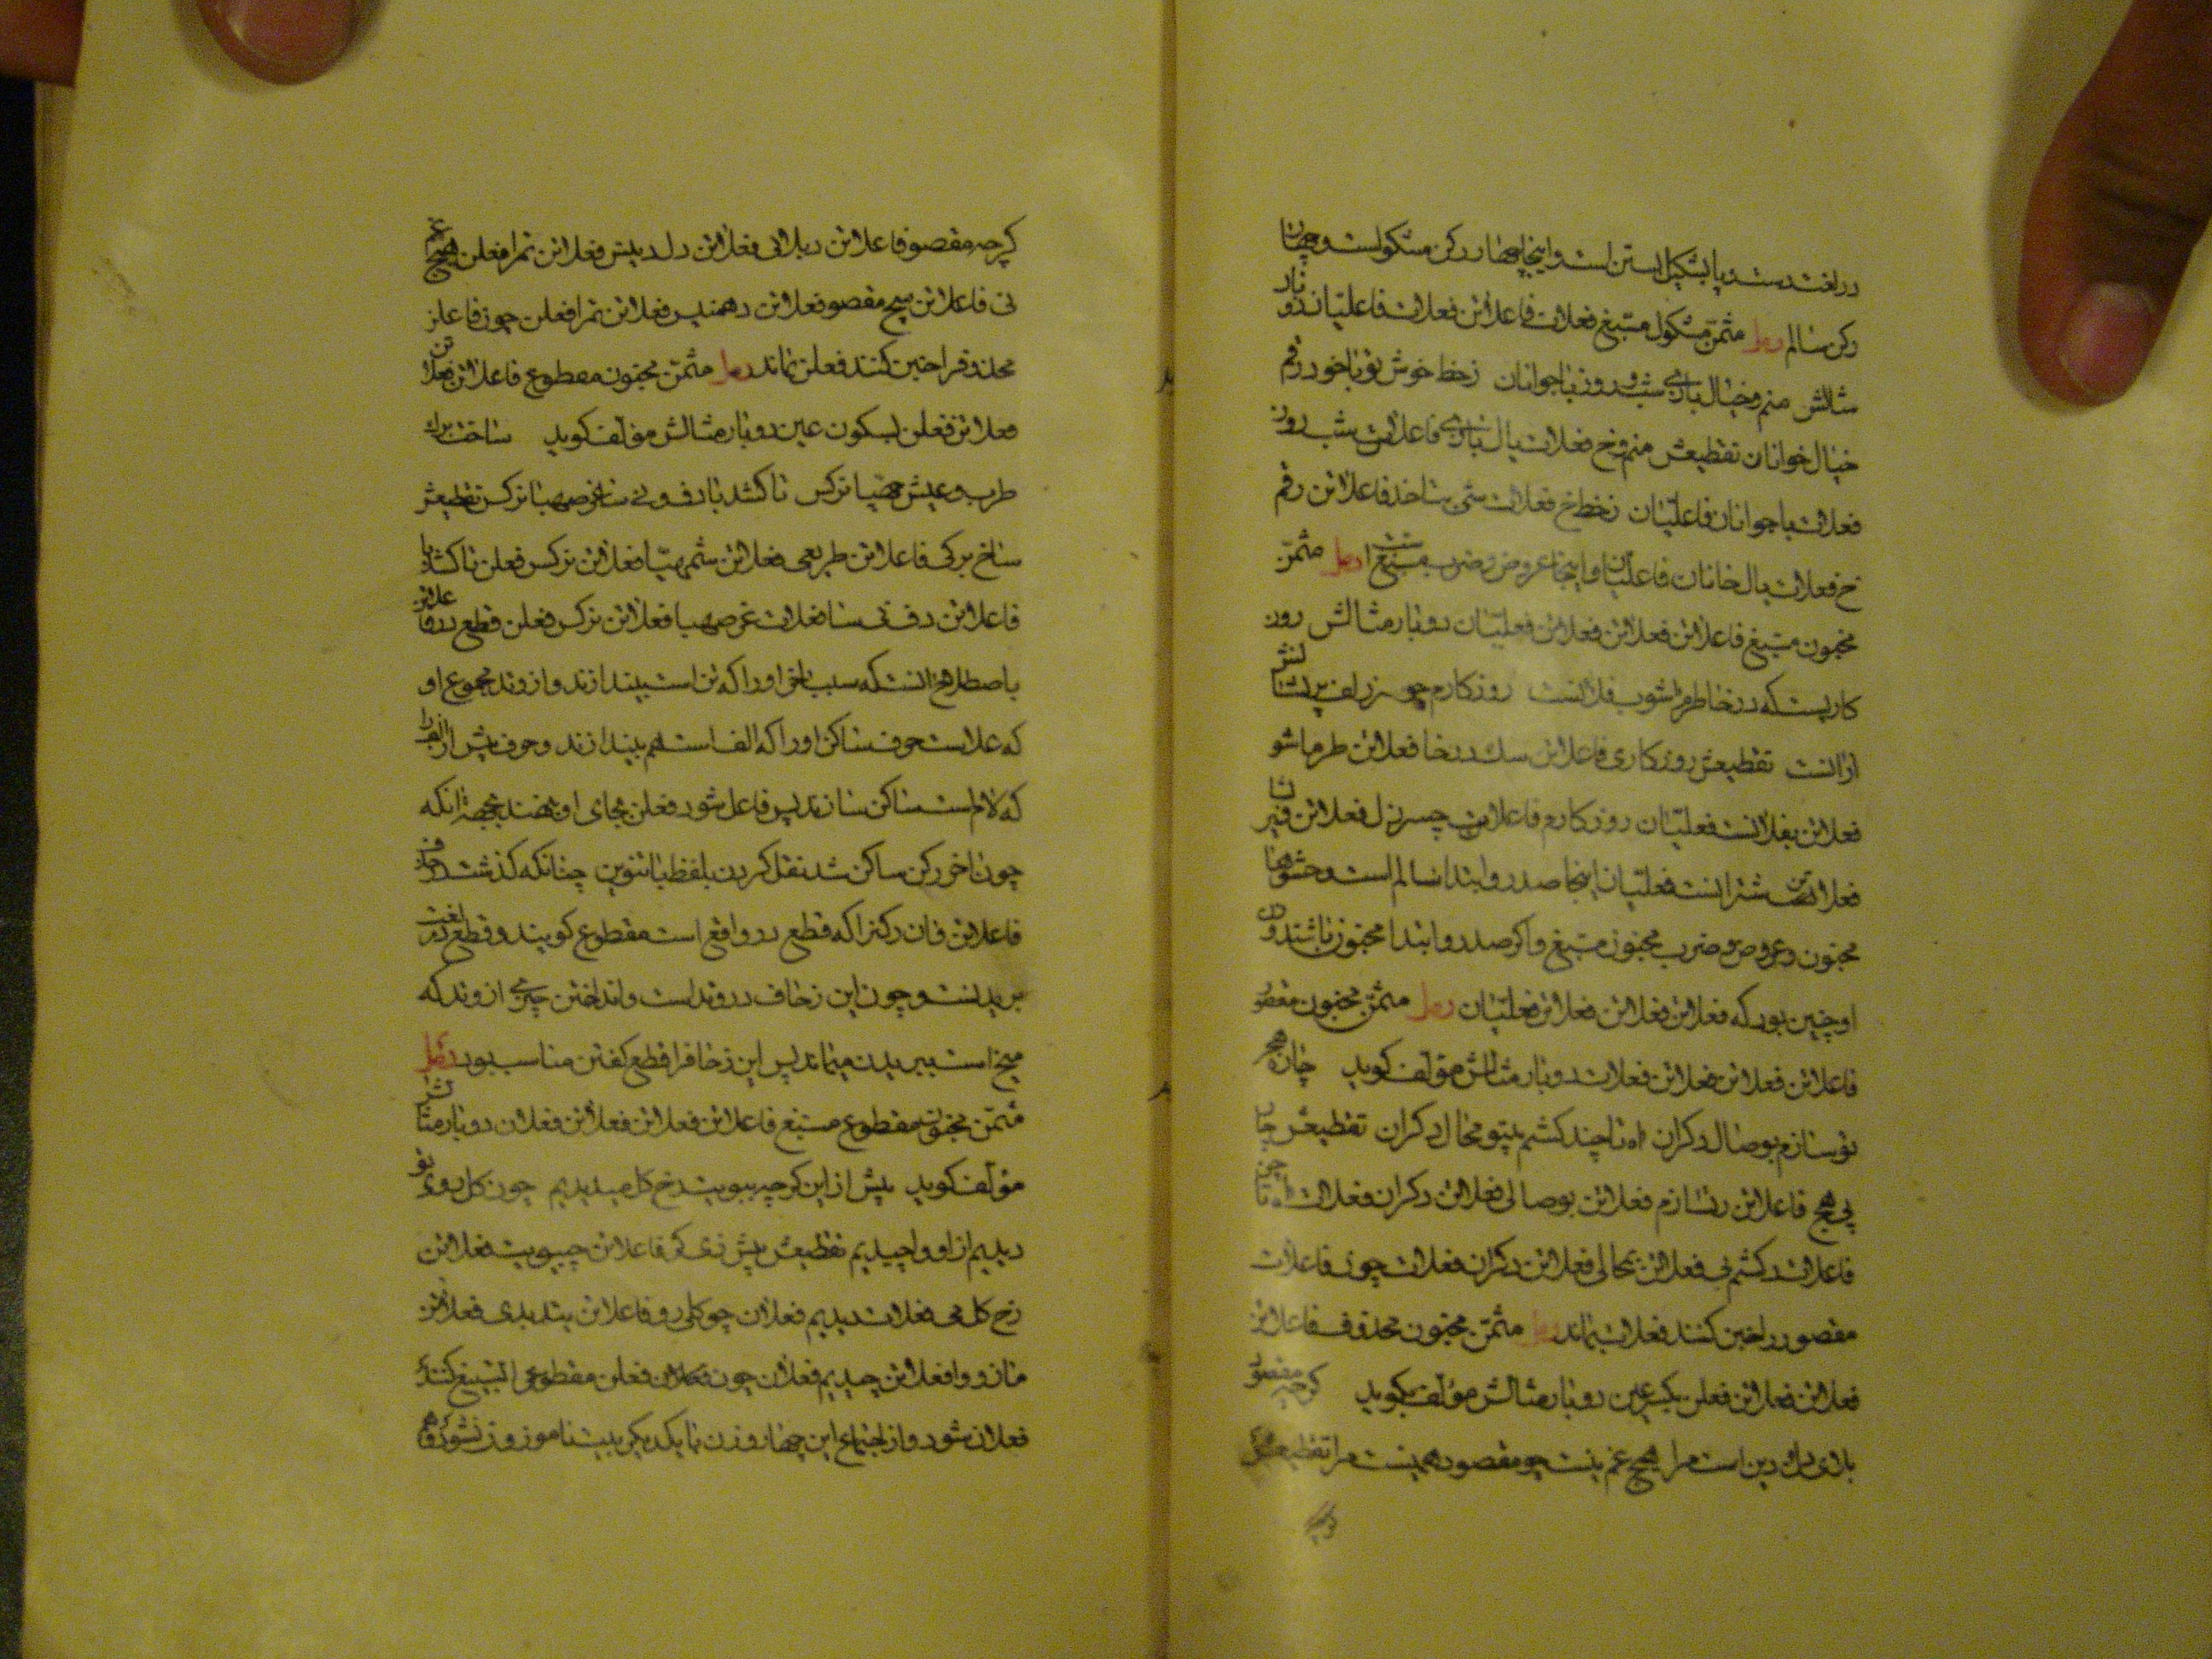 در لغت دست و پا بشکیل بستن است و اینجا چهار رکن مشکولست و چهار
رکن سالم رمل مثمن مشکول مسبغ فعلات فاعلاتن فعلات فاعلیان دو بار
مثالش منم و خیال بازی شب و روز با جوانان ز خط خوش تو با خود رقم
خیال خوانان تقطیعش منم و خ فعلات یال بازی فاعلاتن شب روز
فعلات با جوانان فاعلیان ز خط خ فعلات ش تو با خد فاعلاتن رقم
خ فعلات یال خانان فاعلیان و اینجا عروض و ضرب مسبغ است رمل مثمن
مخبون مسبغ فاعلاتن فعلاتن فعلاتن فعلیان دو بار مثالش روز
کاریست که در خاطرم آشوب فلانست روزگارم چو سر زلف پریشانش
از آنست تقطیعش روزکاری فاعلاتن ست که در خا فعلاتن طرماشو
فعلاتن بفلانست فعلیان روزکارم فاعلاتن چسر زل فعلاتن فپر
فعلاتن شنزانست فعلیان اینجا صدر و ابتدا سالم است و حشوها
مخبون و عروض و ضرب مخبون مسبغ و اگر صدر و ابتدا مخبون باشند وزن
او چنین بود که فعلاتن فعلاتن فعلاتن فعلیان رمل مثمن مخبون مقصور
فاعلاتن فعلاتن فعلاتن فعلات دو بار مثالش مؤلف کوید چاره هجر
تو سازم بوصال دکران اه تا چند کشم بیتو محال دکران تقطیعش چار
یی هج فاعلاتن رتسازم فعلاتن بوصالی فعلاتن دکران فعلات اه تا چن
فاعلاتن دکشم بی فعلاتن تمحالی فعلاتن دکران فعلات چون فاعلات
مقصور را خبن کنند فعلات بماند رمل مثمن مخبون محذوف فاعلاتن
فعلاتن فعلاتن فعلن بکسر عین دو بار مثالش مؤلف کوید کرچه مقصود
بلای دل و دین است مرا هیچ غم نیست چو مقصود همینست مرا تقطیعش
کرچه مقصو فاعلاتن دبلای فعلاتن دل دینس فعلاتن تمرا فعلن هیچ غم
نی فاعلاتن سچ مقصو فعلاتن دهمنیس فعلاتن تمرا فعلن چون فاعلن
محذوف را خبن کنند فعلن بماند رمل مثمن مخبون مقطوع فاعلاتن فعلاتن
فعلاتن فعلن بسکون عین دو بار مثالش مؤلف کوید ساخت برک
طرب و عیش مهیا نرکس تا کشد باد ف و نی ساغر صهبا نرکس تقطیعش
ساخ برکی فاعلاتن طربعی فعلاتن شمهیا فعلاتن نرکس فعلن تا کشد با
فاعلاتن دف نی سا فعلات غر صهبا فعلاتن نرکس فعلن قطع در فاعلاتن
باصطلاح آنست که سبب آخر او را که تن است بیندازند و از وتد مجموع او
که علاست حرف ساکن او را که الف است هم بیندازند و حرف پیش از الف را
که لام است ساکن سازند پس فاعل شود فعلن بجای او نهند بجهة آنکه
چون آخر رکن ساکن شد نقل کردن بلفظ با تنوین چنانکه کذشت در
فاعلاتن و آن رکنرا که قطع در و واقع است مقطوع کویند و قطع در لغت
بریدنست و چون این زحاف در وتد است و انداختن چیزی از وتد که
میخ است ببریدن میماند پس این زحاف را قطع کفتن مناسب بود رمل
مثمن مخبون مقطوع مسبغ فاعلاتن فعلاتن فعلاتن فعلان دو بار مثالش
مؤلف کوید پیش ازین کرچه ببویت رخ کل میدیدیم چون کل روی تو
دیدیم از او واچیدیم تقطیعش پیش زی کر فاعلاتن چببویت فعلاتن
رخ کل می فعلات دیدیم فعلان چو کلی رو فاعلاتن یتدیدی فعلاتن
مازو وا فعلاتن چیدیم فعلان چون فعلن مقطوع را تسبیغ کنند
فعلان شود و از اجتماع این چهار وزن با یکدیکر بیت ناموزون نشود